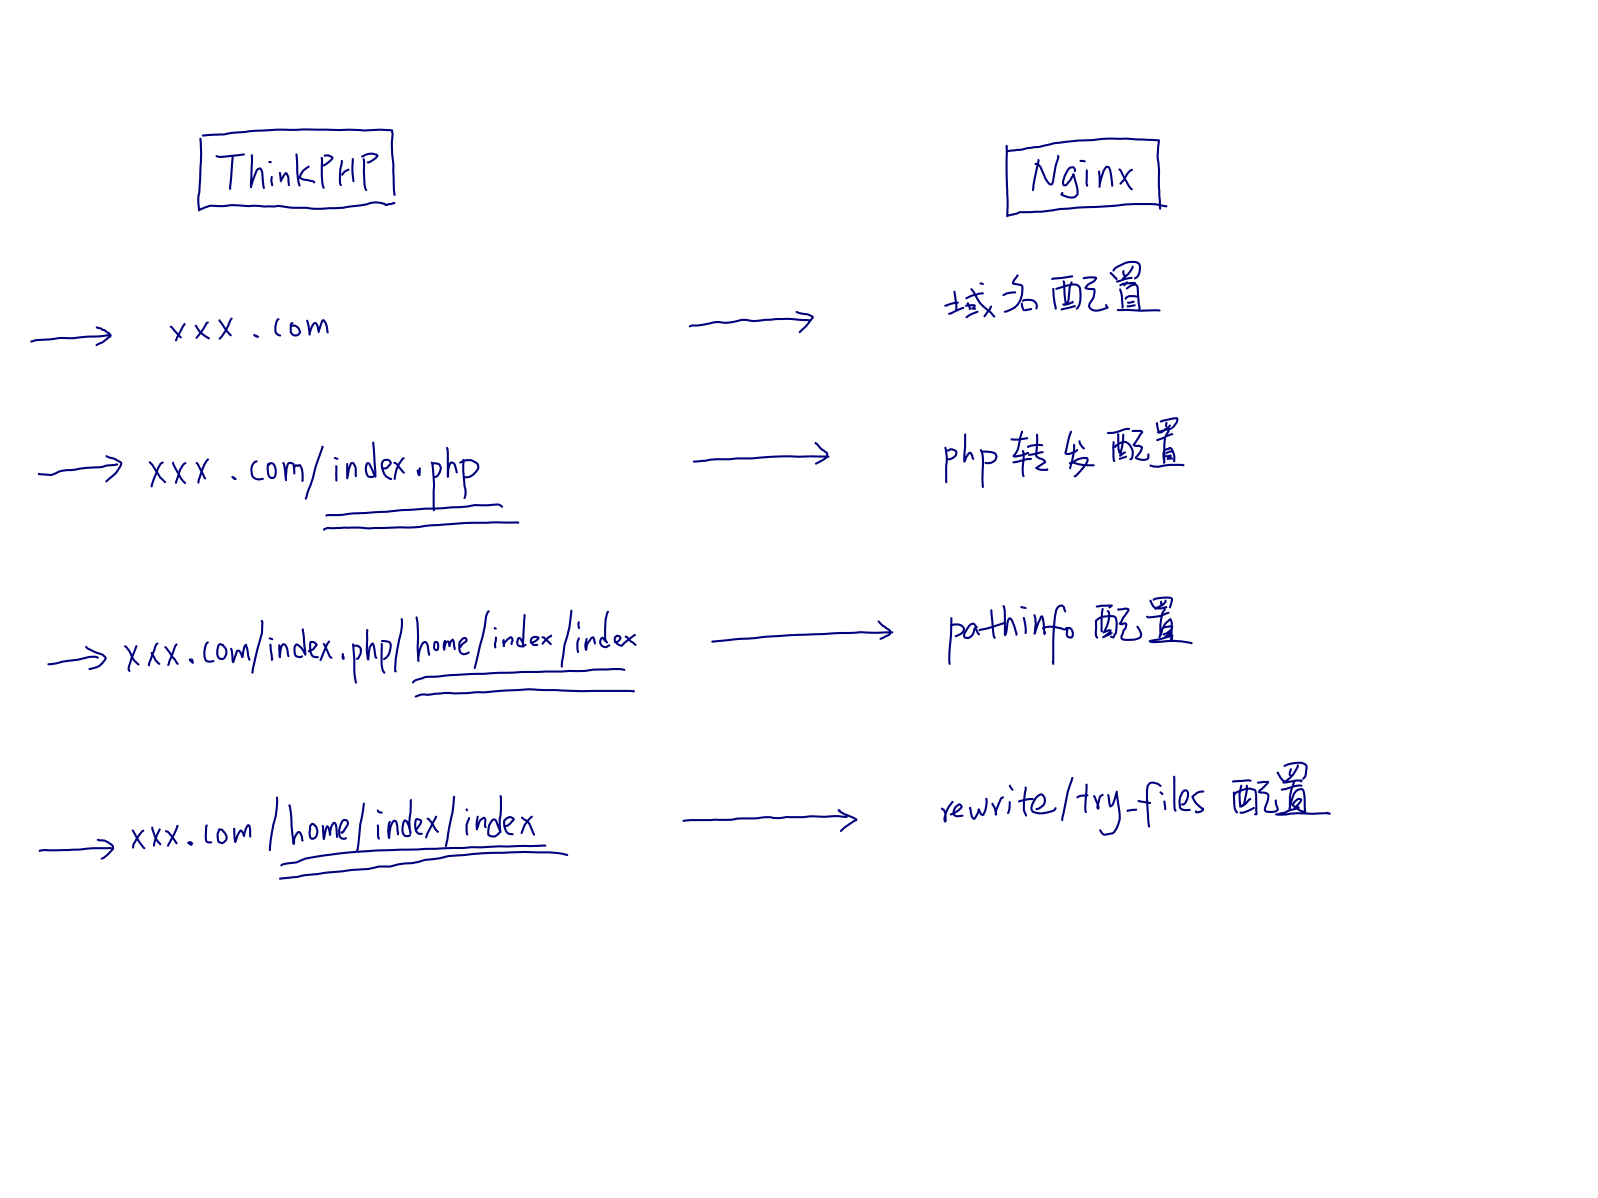 ThinkPHP Nginx
xxx.com 域名配置
xxx.com/index.php php转发配置
xxx.com/index.php/home/index/index pathinfo配置
xxx.com/home/index/index rewrite/try_files 配置